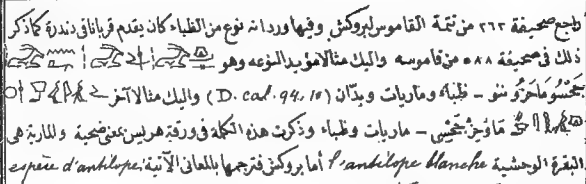 راجع صحيفة ٢٦٢ من تتمة القاموس لبروكش وفيها ورد انه نوع من الظباء كان يقدم قربانا فى دندرة كما ذكر
ذلك فى صحيفة ٥٨٨ من قاموسه واليك مثالا مؤيدا لنوعه وهو
– ظباء وماريات وبدّان (D. cal. 94, 10) واليك مثالا آخر
– ماريات وظباء وذكرت هذه الكلمة فى ورقة هريس بمعنى ضحية والمارية هى
البقرة الوحشية l'antilope blanche أما بروكش فترجمها بالمعانى الآتية: espèce d'antilope